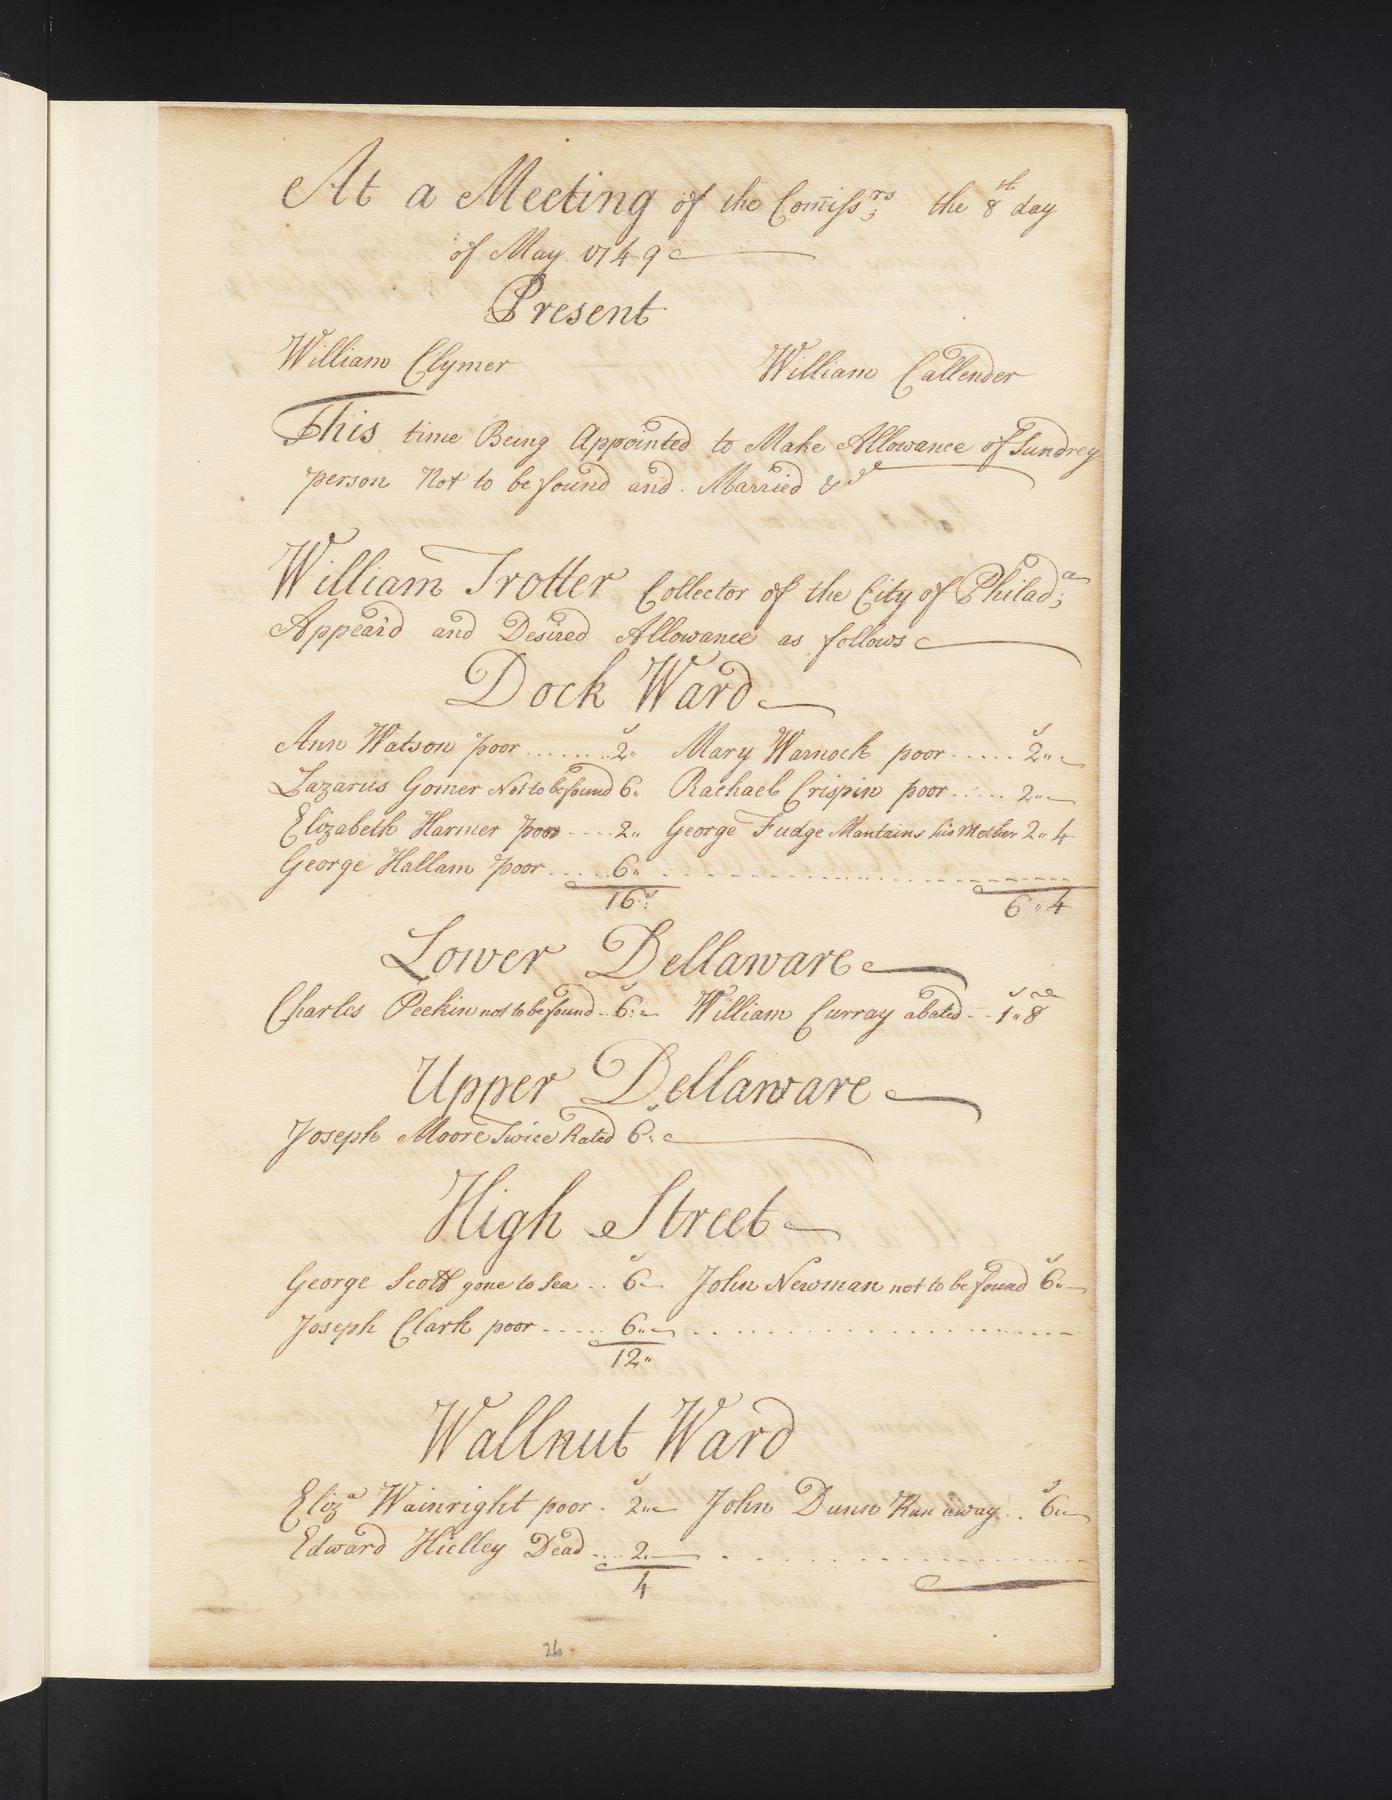 At a Meeting of the Comiss.rs the 8th day
of May 1749
Present
William Clymer William Callender
This time Being Appointed to Make Allowance of Sundrey
person Not to be found and Married &c
William Trotter Collector of the City of Philad.a
Appeard and Desired Allowance as follows
Dock Ward
Ann Watson poor ....... 2s Mary Warnock poor ..... 2s
Lazarus Gomer Not to be found 6 Rachael Crispin poor ..... 2
Elizabeth Harmer poor .... 2 George Fudge Mantains his Mother 2"4
George Hallam poor ..... 6
16 6"4
Lower Dellaware
Charles Peekin not to be found .. 6s William Curray abated .. 1s"8d
Upper Dellaware
Joseph Moore Twice Rated 6s
High Street
George Scott gone to Sea .. 6s John Newman not to be found 6s
Joseph Clark poor ..... 6
12
Wallnut Ward
Eliz.a Wainright poor . 2s John Dunn Run away .. 6s
Edward Hielley Dead .... 2
4
26